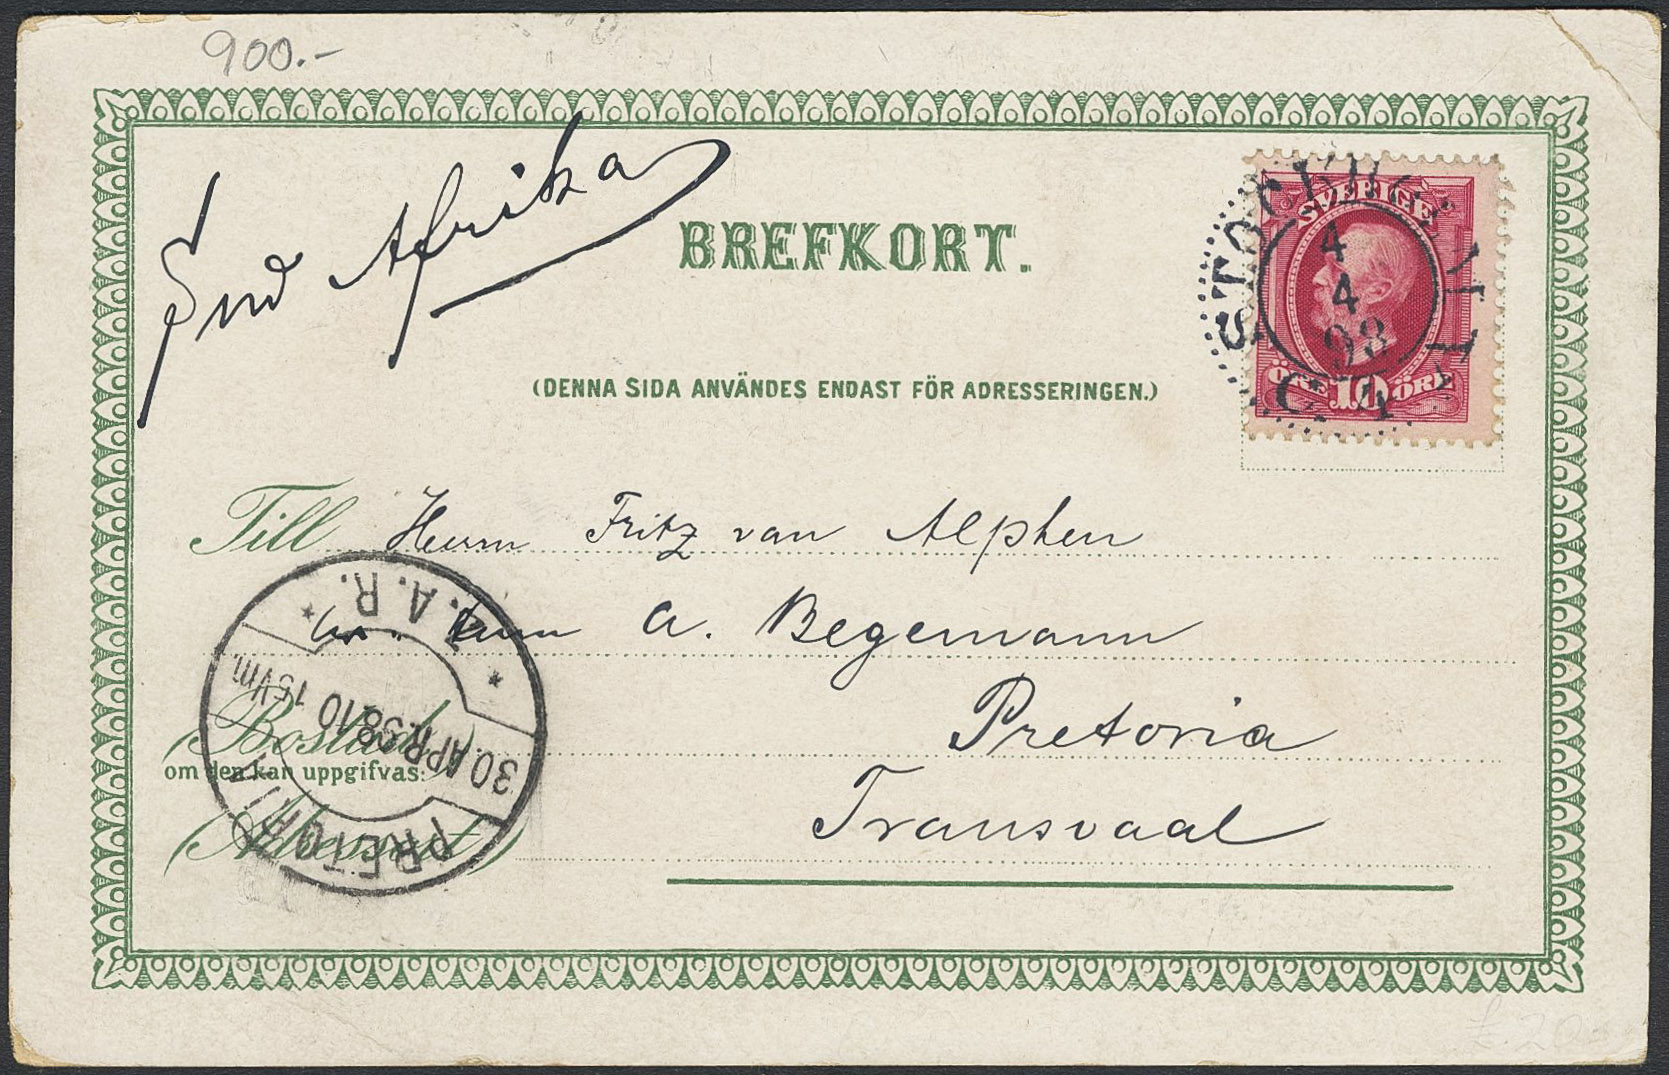 900.-
Süd Afrika
BREFKORT.
SVERIGE
ÖRE 10 ÖRE
4
4
98
(DENNA SIDA ANVÄNDES ENDAST FÖR ADRESSERINGEN.)
Till Herrn Fritz van Alphen
A. Begemann
Pretoria
Transvaal
(Bostad)
om den kan uppgifvas:
(Adressort)
Z.A.R.
30.APR.98.10 15Vm.
PRETORIA
£20